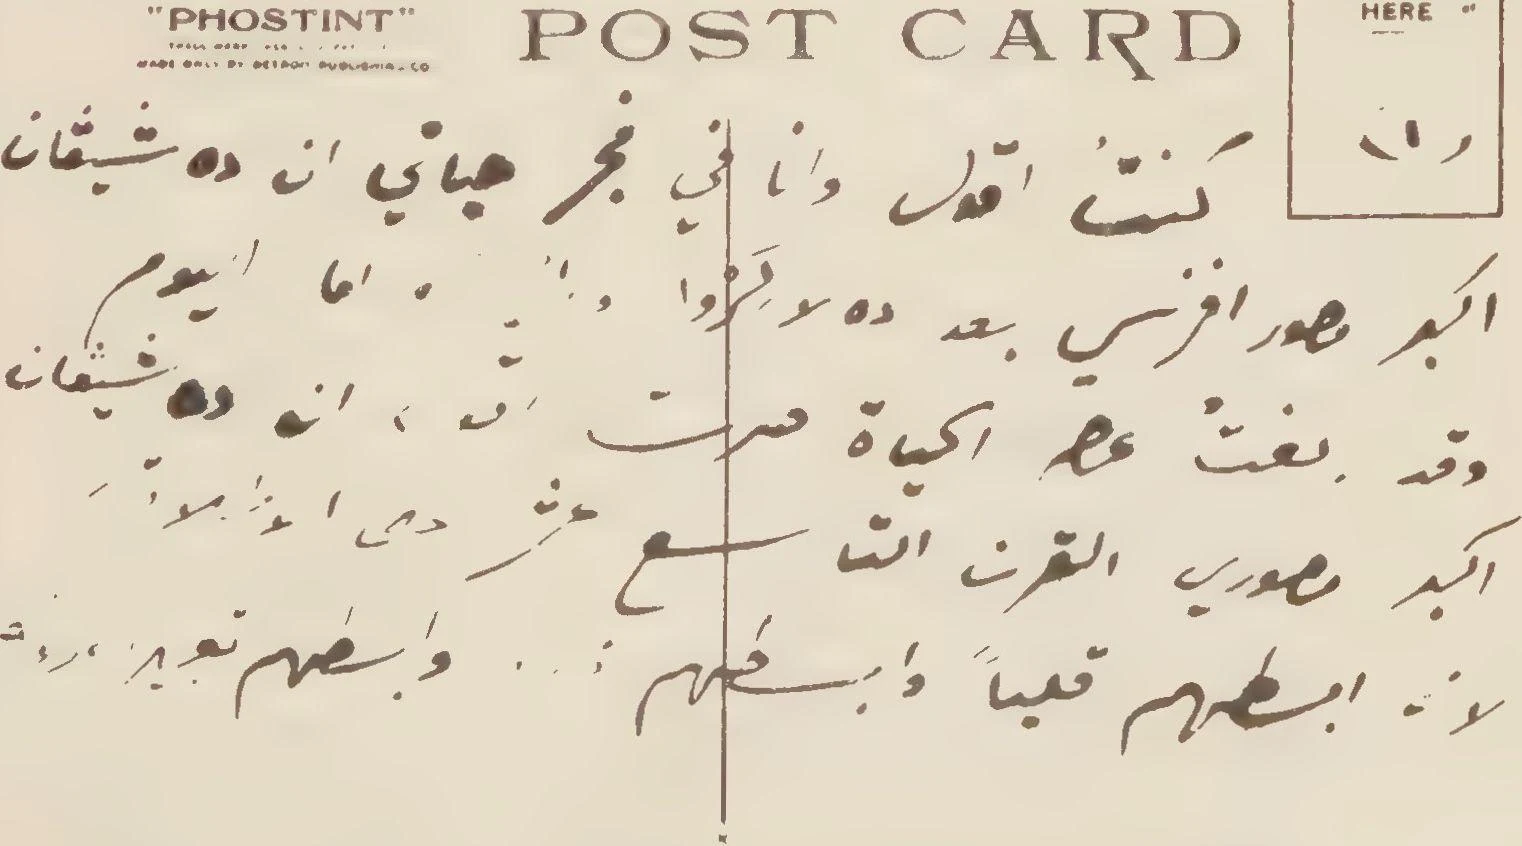 "PHOSTINT"
MADE ONLY BY DETROIT PUBLISHING CO
POST CARD
HERE
كنتُ اقول وانا في فجر حياتي ان ده شيڤان
اكبر مصور افرنسي بعد ده لاكروا اما اليوم
وقد بلغتُ عصر الحياة صرت ان ده شيڤان
اكبر مصوري القرن التاسع عشر
لانه ابسطهم قلباً وابسطهم وابسطهم